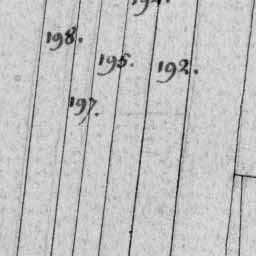 194.
198.
195.
192.
197.